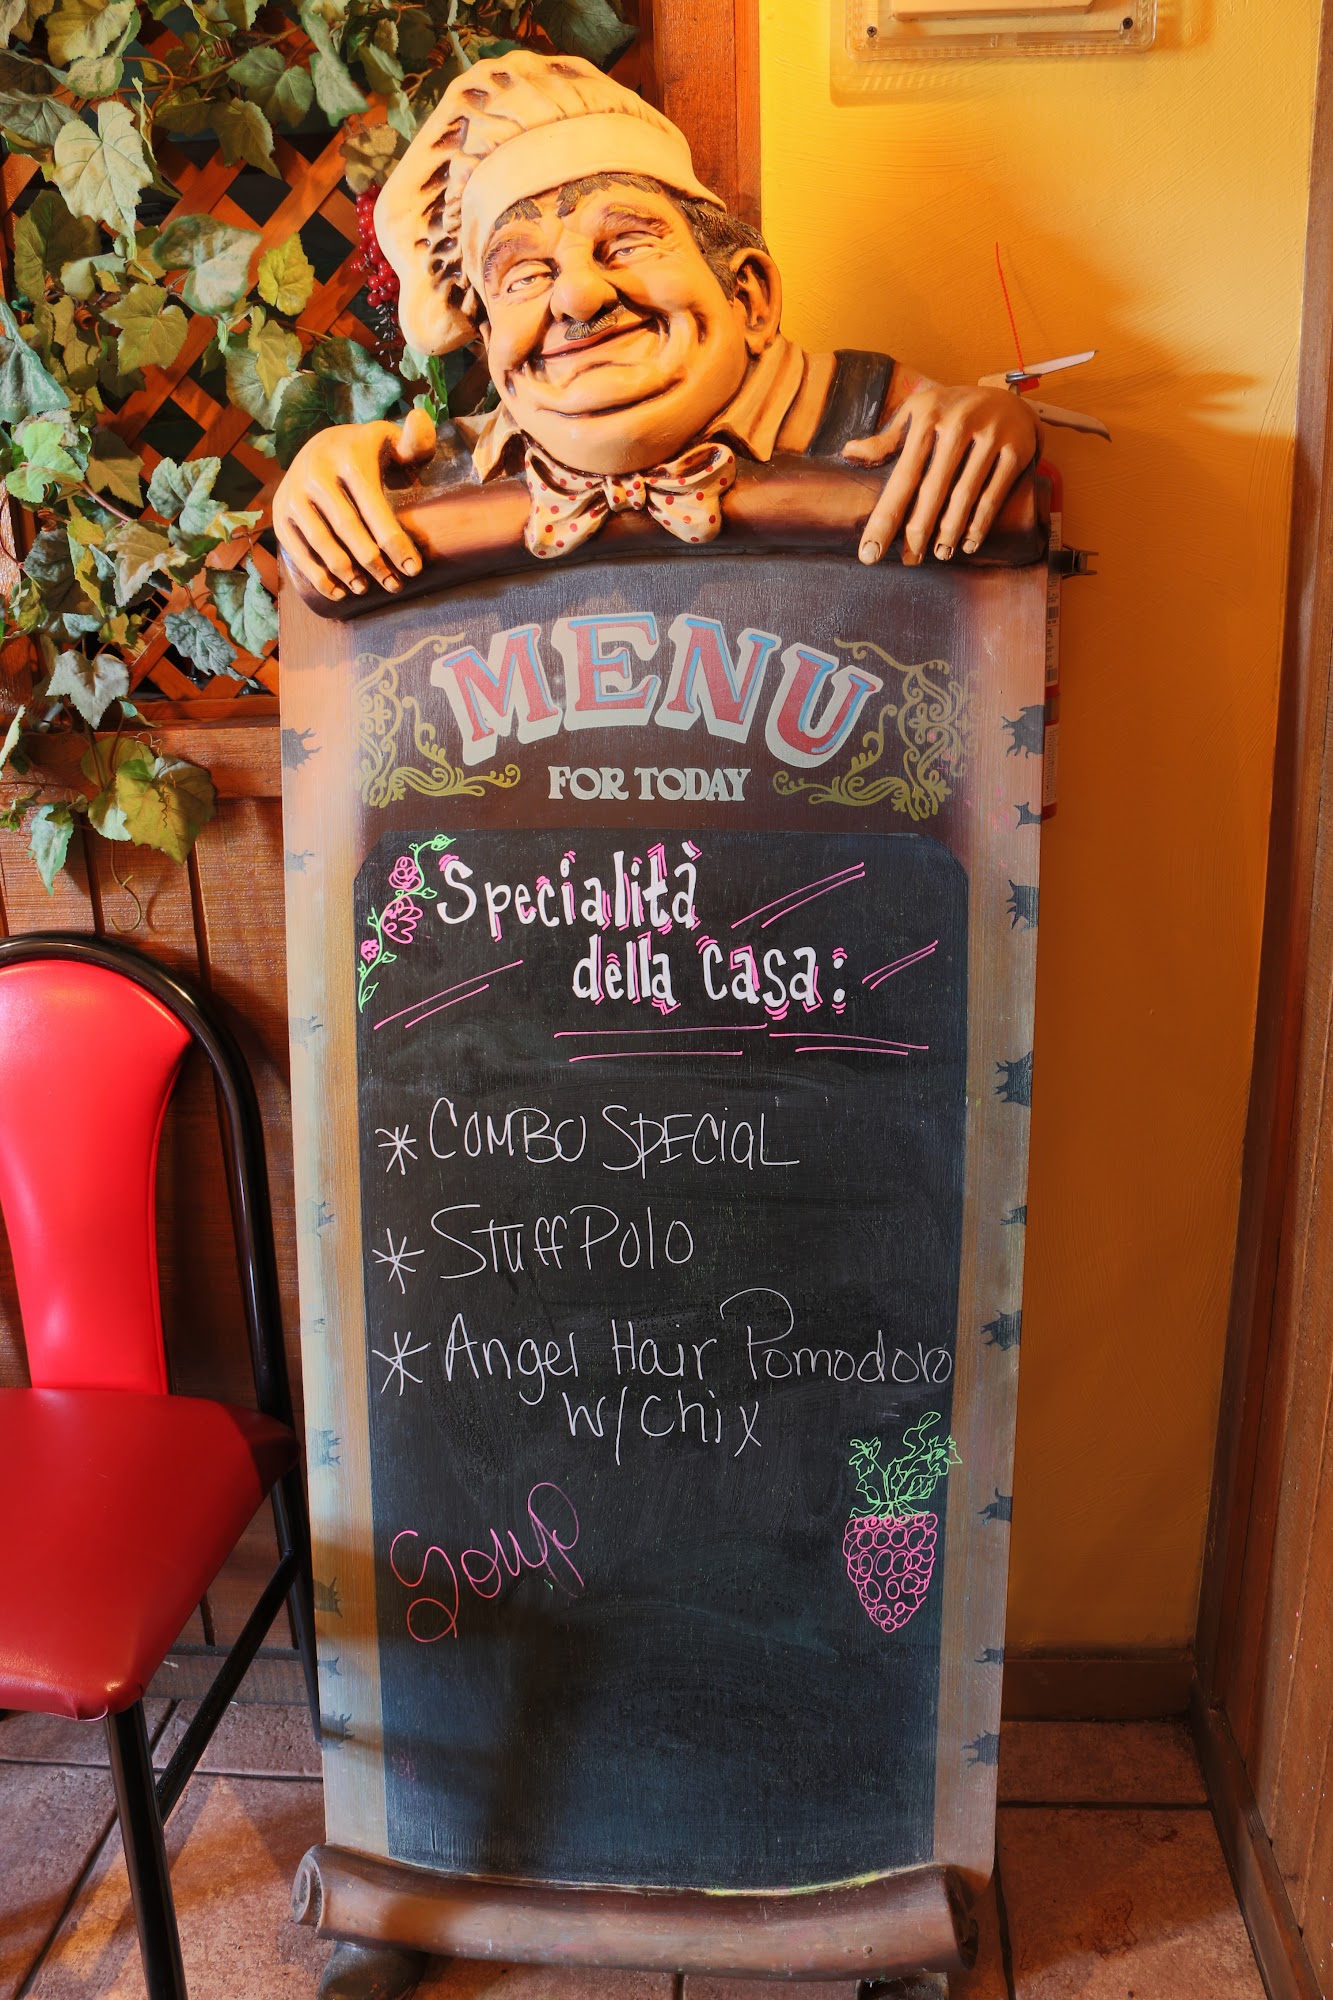 MENU
FOR TODAY
Specialità
della casa:
* COMBO SPECIAL
* Stuff Polo
* Angel Hair Pomodoro
w/ chix
Soup